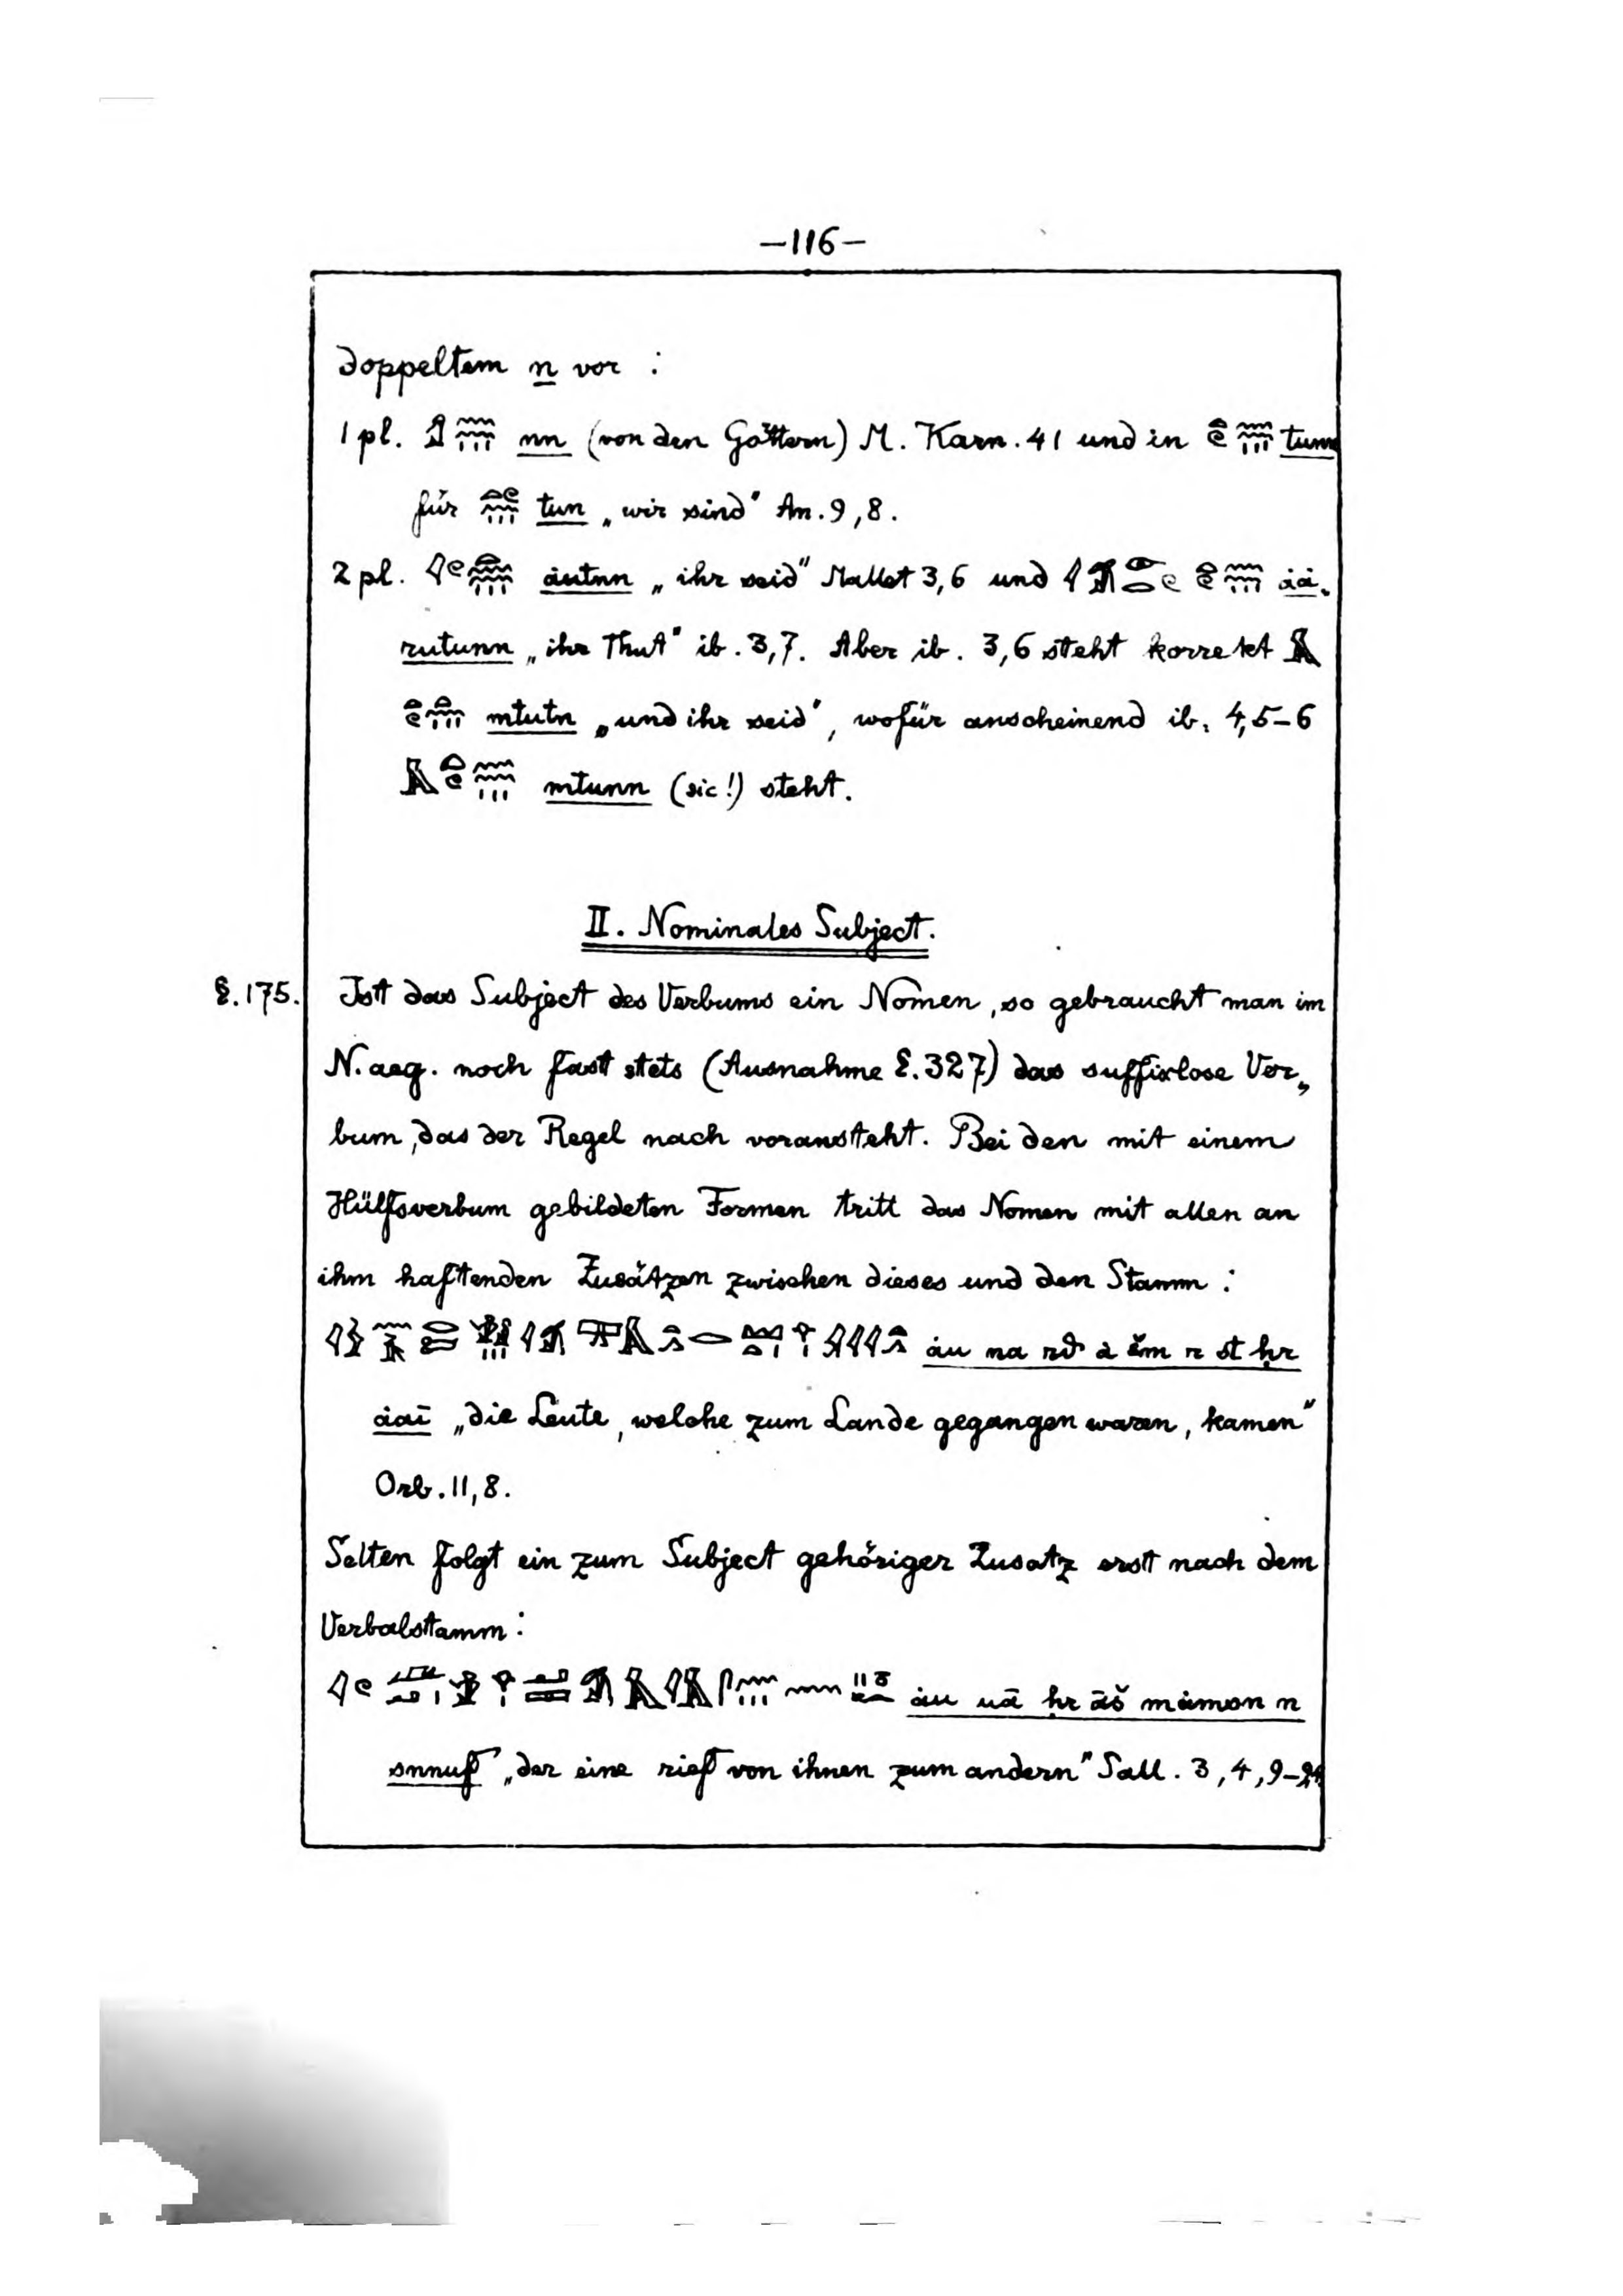 —116—
doppeltem n vor :
1 pl. nn (von den Göttern) M. Karn. 41 und in tunn
für tun „wir sind" An. 9, 8.
2 pl. ȧutnn „ihr seid" Mallet 3,6 und ȧȧ-
rutunn „ihr Thut" ib. 3,7. Aber ib. 3,6 steht korrekt
mtutn „und ihr seid", wofür anscheinend ib. 4,5–6
mtunn (sic!) steht.
II. Nominales Subject.
§. 175. Ist das Subject des Verbums ein Nomen, so gebraucht man im
N. aeg. noch fast stets (Ausnahme §. 327) das suffixlose Ver„
bum, das der Regel nach voransteht. Bei den mit einem
Hülfsverbum gebildeten Formen tritt das Nomen mit allen an
ihm haftenden Zusätzen zwischen dieses und den Stamm :
ȧu na rd ȧ šm r st ḥr
ȧaī „die Leute, welche zum Lande gegangen waren, kamen"
Orb. 11, 8.
Selten folgt ein zum Subject gehöriger Zusatz erst nach dem
Verbalstamm :
ȧu uā ḥr āš mȧmsn n
snnuf „der eine rief von ihnen zum andern" Sall. 3, 4, 9–